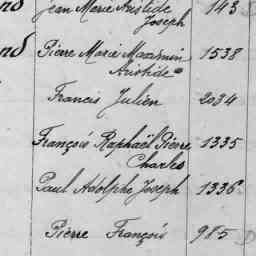 Jean Marie Aristide 143
Joseph
Pierre Marie Maximin 1538
Aristide
Francis Julien 2034
François Raphaël Pierre 1335
Charles
Paul Adolphe Joseph 1336
Pierre François 985